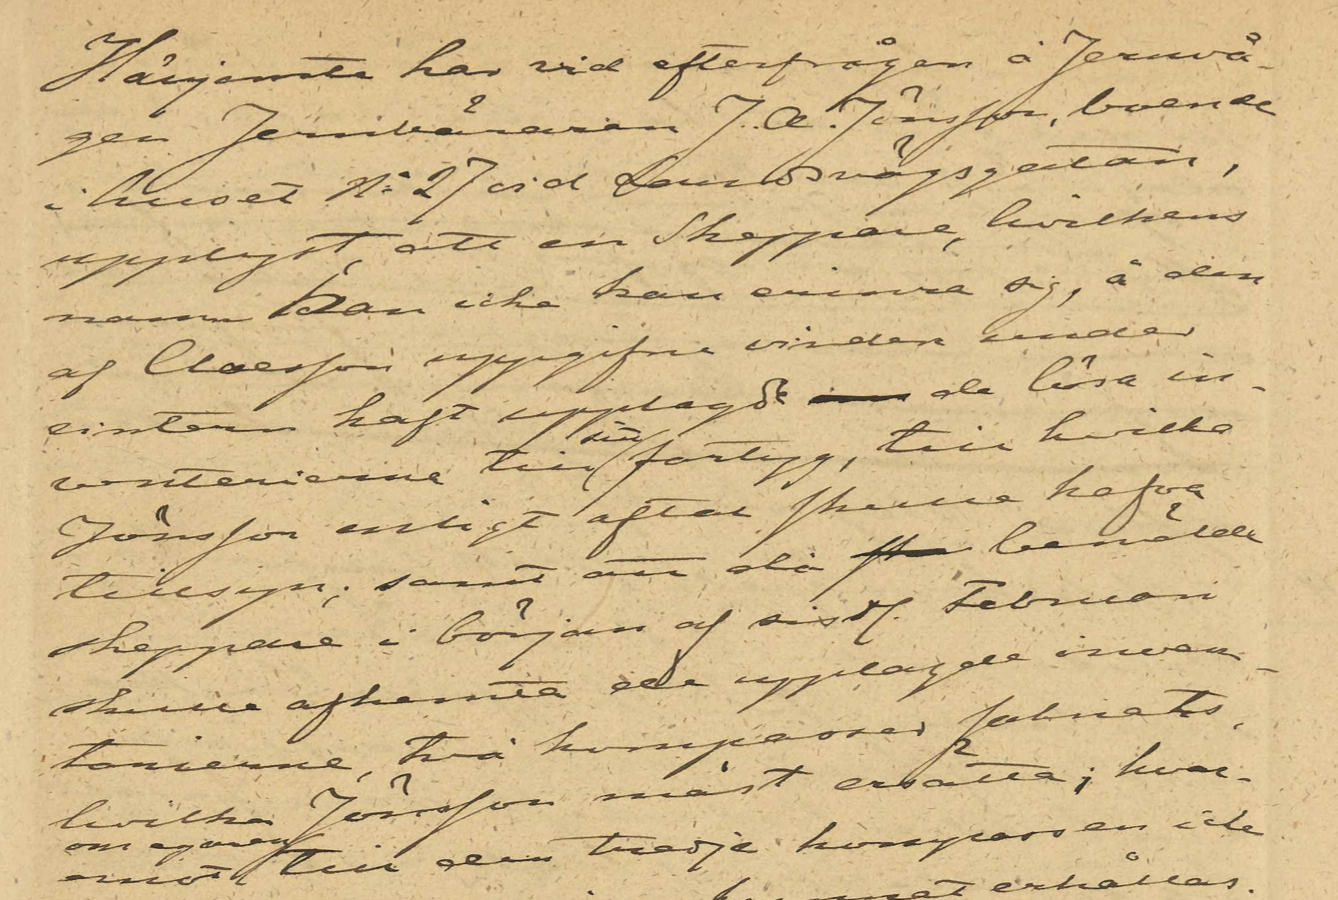 Härjemte har vid efterfrågan å Jernvå-
gen Jernbäraren J. A. Jönsson, boende
i huset N: 27 vid Landsvägsgatan,
upplyst, att en Skeppare, hvilkens
namn han icke kan erinra sig, å den
af Claesson uppgifne vinden under
vintern haft upplagde de lösa in-
venterierne till sin fartyg, till hvilka
Jönsson enligt aftal skulle hafva
tillsyn; samt att då benälde
skeppare i början af sistl. Februari
skulle afhemta de upplagde inven-
tarierne, två kompasser saknats,
hvilka Jönsson måst ersätta; hvar-
om egaren
emot till den tredje kompassen icke
erhållas.